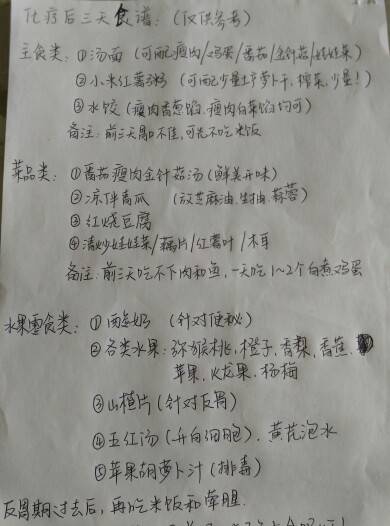 化疗后三天食谱：（仅供参考）
主食类：①汤面（可配瘦肉/鸡蛋/番茄/金针菇/娃娃菜）
②小米红薯粥（可配少量土萝卜干，榨菜，少量！）
③水饺（瘦肉香葱馅，瘦肉白菜馅均可）
备注：前三天胃口不佳，可先不吃米饭
菜品类：①番茄瘦肉金针菇汤（鲜美开味）
②凉伴青瓜（放芝麻油，生抽，蒜蓉）
③红烧豆腐
④清炒娃娃菜/藕片/红薯叶/木耳
备注：前三天吃不下肉和鱼，一天吃1~2个白煮鸡蛋
水果零食类：①酸奶（针对便秘）
②各类水果：弥猴桃，橙子，香梨，香蕉
苹果，火龙果，杨梅
③山楂片（针对反胃）
④五红汤（升白细胞），黄芪泡水
⑤苹果胡萝卜汁（排毒）
反胃期过去后，再吃米饭和荤腥.